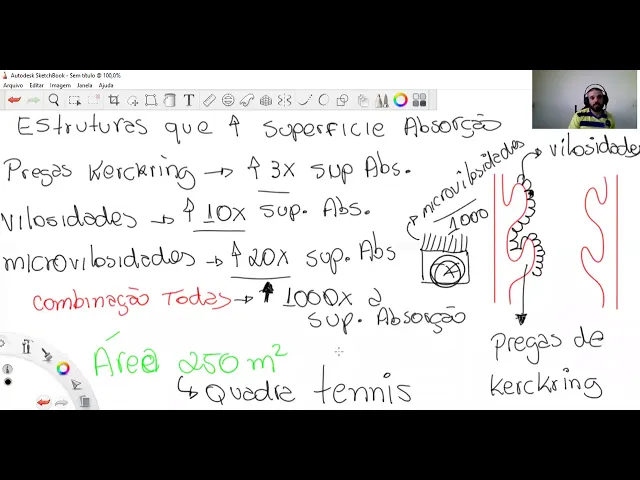 Autodesk SketchBook - Sem título @ 100,0%
Arquivo Editar Imagem Janela Ajuda
Estruturas que ↑ superfície Absorção
Pregas Kerckring → ↑ 3x sup Abs.
vilosidades → ↑ 10x sup. Abs.
microvilosidades → ↑ 20x sup. Abs
combinação Todas → ↑ 1000x a
sup. Absorção
Área 250 m²
↳ Quadra tennis
microvilosidades
1000
vilosidades
Pregas de
kerckring